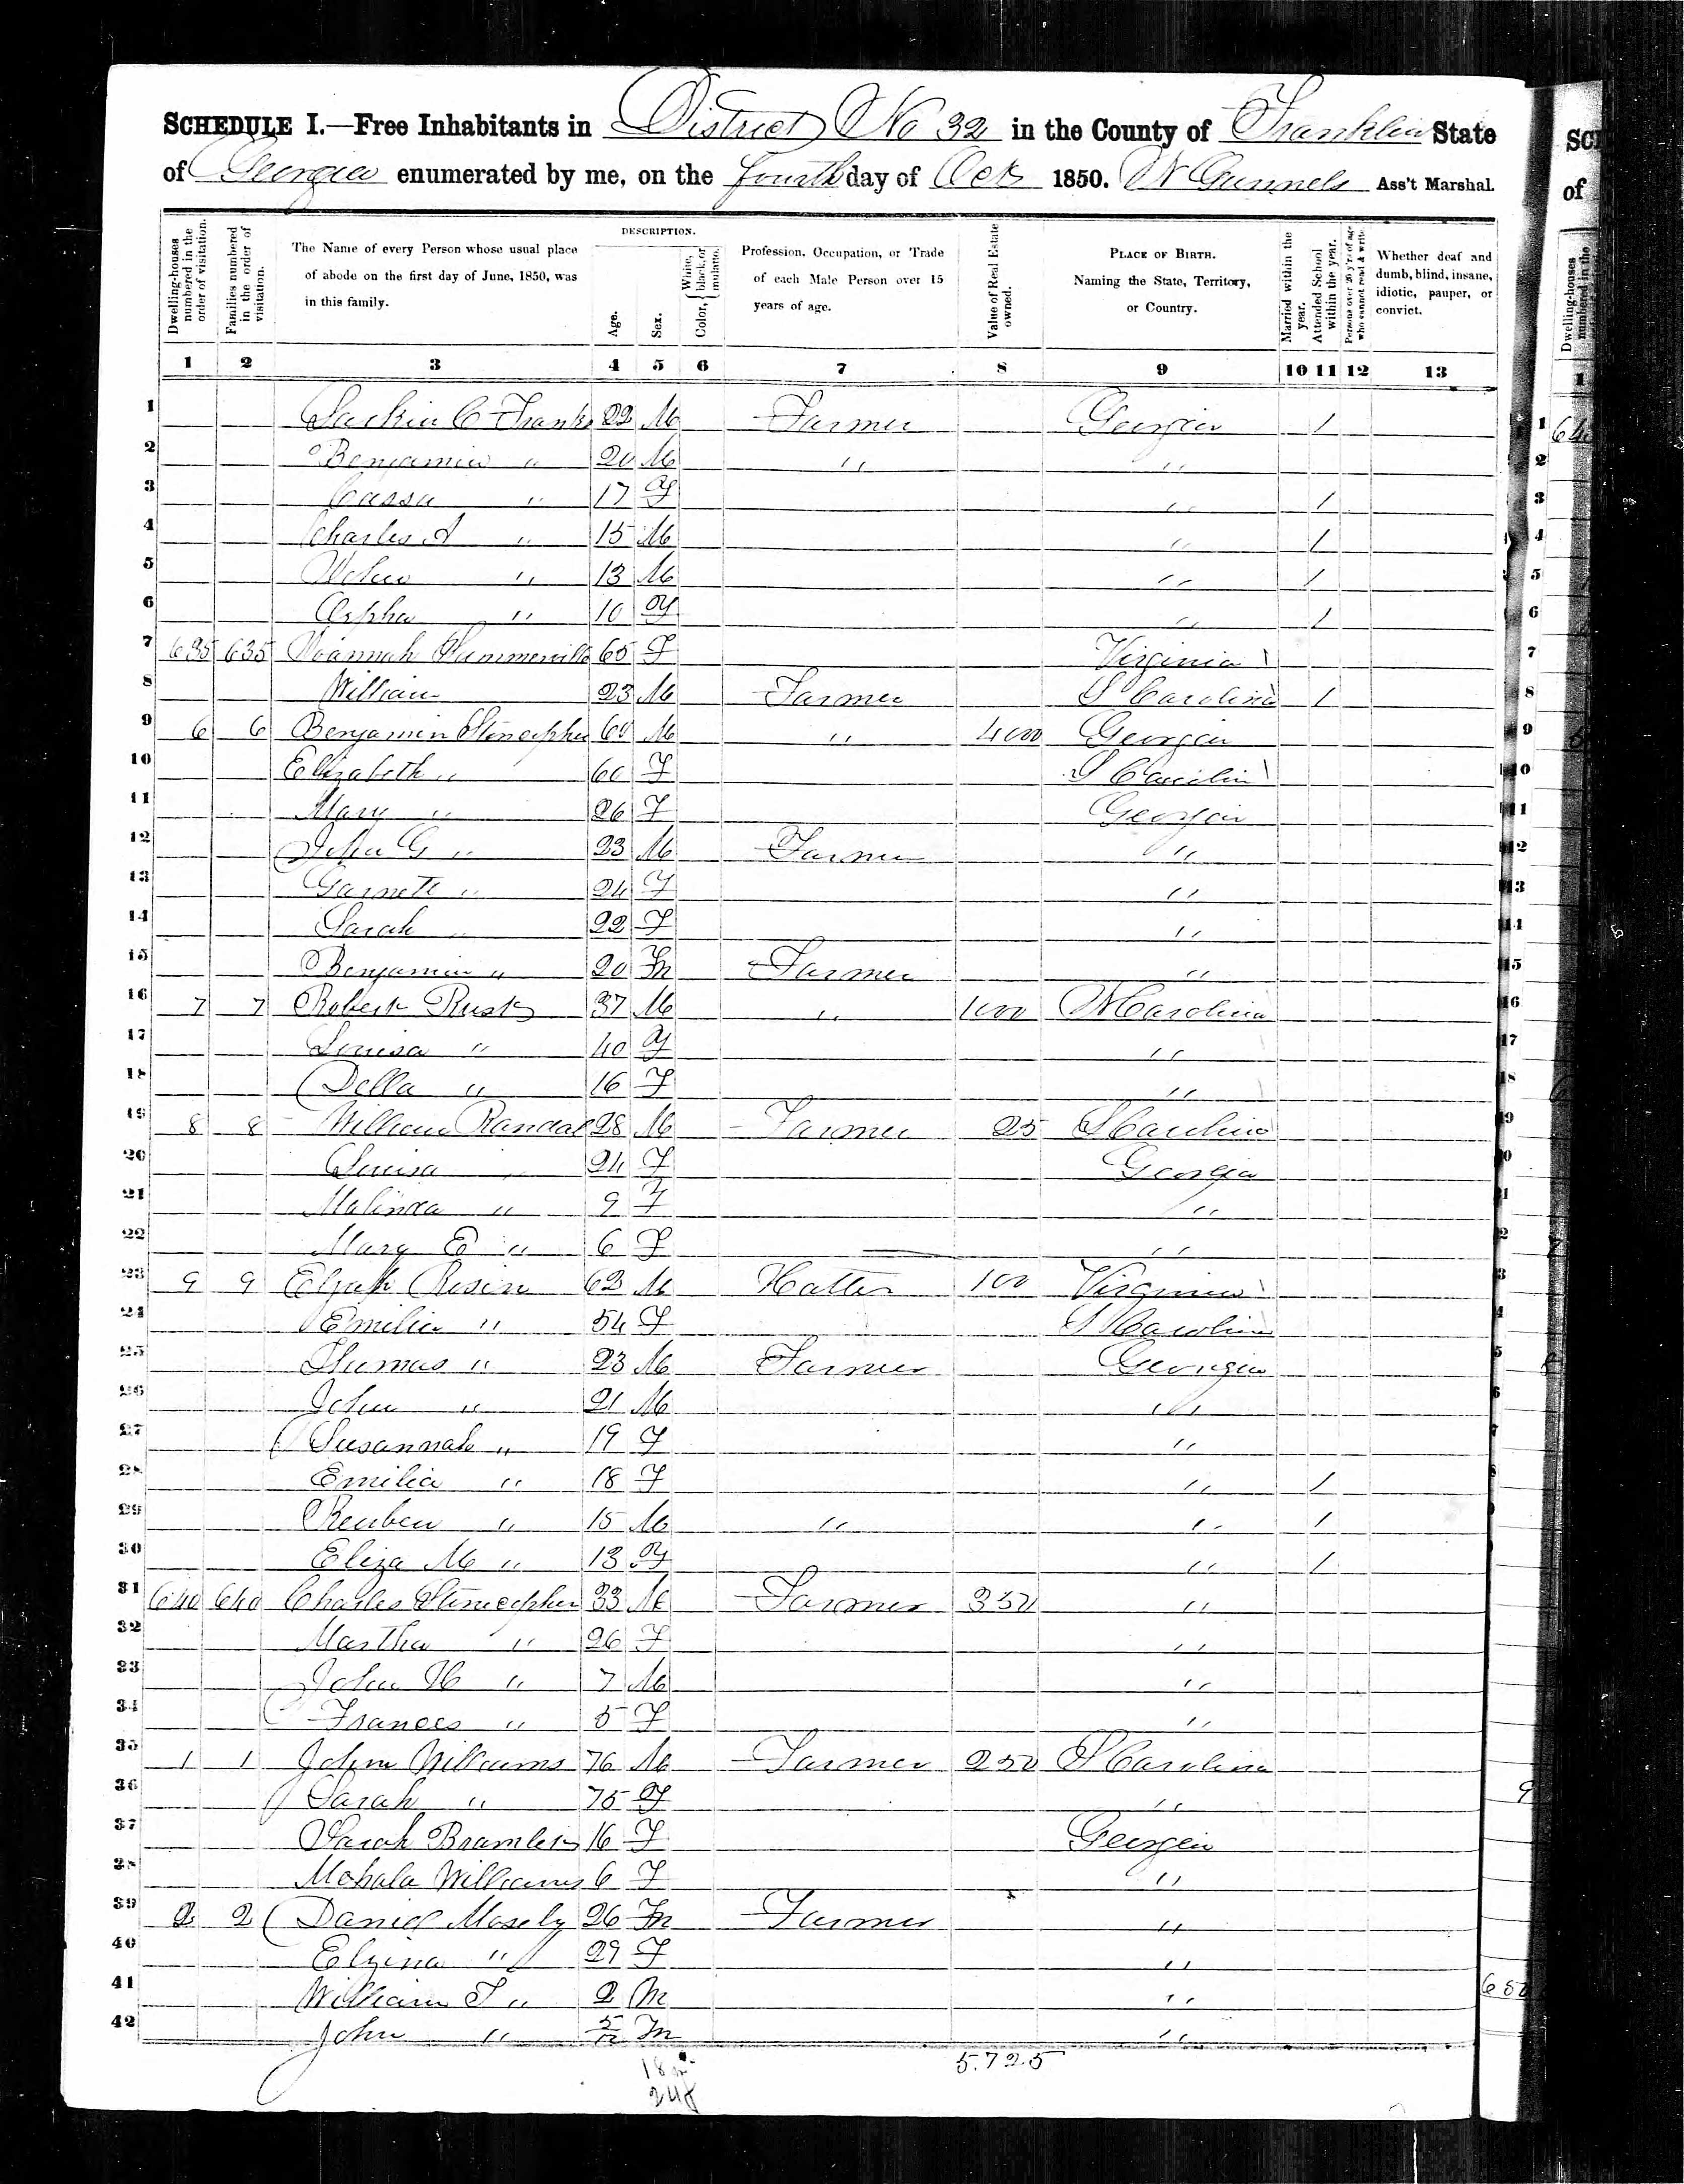 SCHEDULE I.—Free Inhabitants in District No 32 in the County of Franklin State
of Georgia enumerated by me, on the fourth day of Oct 1850. W Gunnels Ass't Marshal.
DESCRIPTION.
Dwelling-houses numbered in the order of visitation.
Families numbered in the order of visitation.
The Name of every Person whose usual place of abode on the first day of June, 1850, was in this family.
Age.
Sex.
Color, White, black, or mulatto.
Profession, Occupation, or Trade of each Male Person over 15 years of age.
Value of Real Estate owned.
PLACE OF BIRTH. Naming the State, Territory, or Country.
Married within the year.
Attended School within the year.
Persons over 20 y'rs of age who cannot read & write.
Whether deaf and dumb, blind, insane, idiotic, pauper, or convict.
1 2 3 4 5 6 7 8 9 10 11 12 13
1 C Franks 22 M Farmer Georgia / 1
2 Benjamin " 20 M " " 2
3 Cassa " 17 F " / 3
4 Charles A " 15 M " / 4
5 " 13 M " / 5
6 Orpha " 10 F " / 6
7 635 635 65 F Virginia 7
8 William 23 M Farmer S Carolina / 8
9 6 6 Benjamin Stonecypher 60 M " 4000 Georgia 9
10 Elizabeth " 60 F S Carolin 10
11 Mary " 26 F Georgia 11
12 John G " 23 M Farmer " 12
13 Garnett " 24 F " 13
14 Sarah " 22 F " 14
15 Benjamin " 20 M Farmer " 15
16 7 7 Robert Rusk 37 M " 1000 N Carolina 16
17 Louisa " 40 F " 17
18 Della " 16 F " 18
19 8 8 William Randal 28 M Farmer 25 S Carolina 19
20 Louisa " 24 F Georgia
21 Malinda " 9 F "
22 Mary E " 6 F "
23 9 9 Elijah Rosin 62 M Hatter 100 Virginia
24 Emilia " 54 F S Carolina
25 Thomas " 23 M Farmer Georgia
26 John " 21 M "
27 Susannah " 19 F "
28 Emilia " 18 F " /
29 Reuben " 15 M " " /
30 Eliza M " 13 F " /
31 640 640 Charles Stonecypher 33 M Farmer 350 "
32 Martha " 26 F "
33 John H " 7 M "
34 Frances " 5 F "
35 1 1 John Williams 76 M Farmer 250 S Carolina
36 Sarah " 75 F "
37 Sarah 16 F Georgia
38 Mahala Williams 6 F "
39 2 2 Daniel Mosely 26 M Farmer "
40 Elzina " 29 F "
41 William T " 2 M "
42 John " 5/12 M "
18 m
24 f
5.725